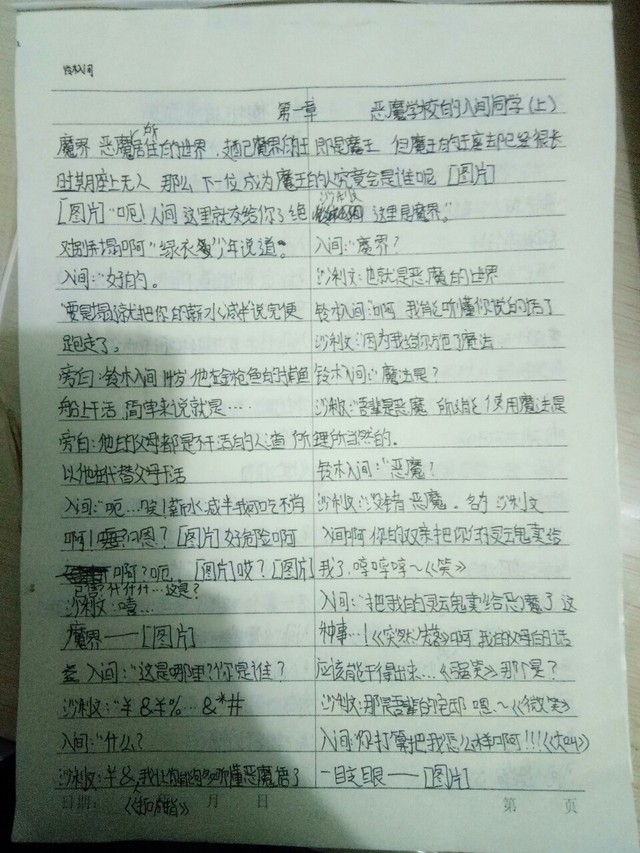 铃木入间
第一章 恶魔学校的入间同学(上)
魔界 恶魔居住的所世界,
但魔王的王座却已经很长
时期座上无人 那么 下一位 成为魔王的人究竟会是谁呢 [图片]
[图片] "呃) 入间 这里就交给你了绝
对别弄塌啊" 绿衣 少年说道。
入间:"好的。
"要是塌了就把你的薪水减半 说完便
跑走了。
旁白:铃木入间 14岁 他在金枪鱼的捕鱼
船上干活 简单来说就是····
旁白:他的父母都是不干活的人渣 所
以他在代替父母干活
入间:"呃…唉!薪水减半我可吃不消
啊! 嗯? [图片] 好危险啊
啊?呃, [图片] 哎? [图片]
什什什…这是?
沙利文:嘻…
魔界——[图片]
入间:"这是哪里?你是谁?
沙利文:"¥&¥%…&*#
入间:"什么?
沙利文:"¥&,我让你能够听懂恶魔语了
《打响指》
沙利文
这里是魔界。"
入间:"魔界?
沙利文:也就是恶魔的世界
铃木入间:啊 我能听懂你说的话了
沙利文:因为我给你施了魔法
铃木入间:"魔法是?
沙利文:吾辈是恶魔 所以能使用魔法是
理所当然的。
铃木入间:"恶魔?
沙利文:没错 恶魔。名为 沙利文
入间啊 你的双亲把你的灵魂卖给
我了,哼哼哼~《笑》
入间:"把我的灵魂卖给恶魔了 这
种事…!《突然发落》啊 我的父母的话
应该能干得出来…《强笑》那个是?
沙利文:那是吾辈的宅邸 嗯~《微笑》
入间:你打算把我怎么样啊!!!《大叫》
一目定眼——[图片]
日期: 年 月 日 第 页